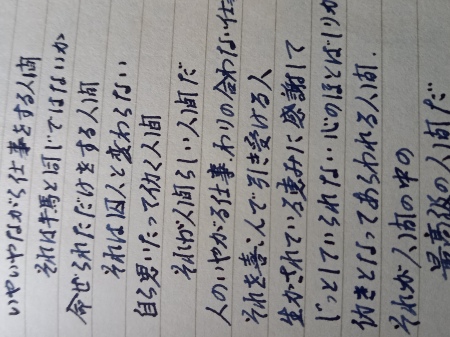 いやいやながら仕事をする人間
それは牛馬と同じではないか
命ぜられただけをする人間
それは囚人と変わらない
自ら思いたって仂く人間
それが人間らしい人間だ
人のいやがる仕事、わりの合わない仕事
それを喜んで引き受ける人
生かされている恵みに感謝して
じっとしていられない心のほとばしりが
仂きとなってあらわれる人間.
それが人間の中の
最高級の人間だ